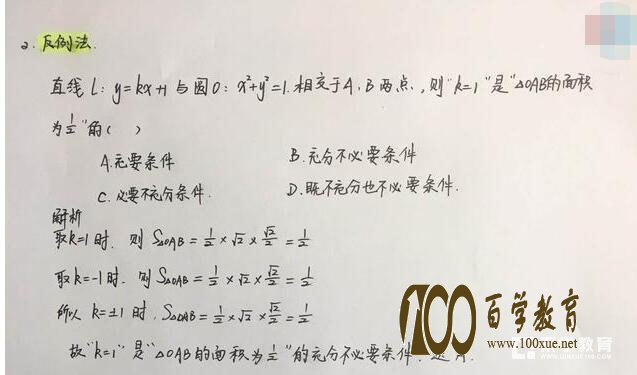 2. 反例法.
直线 l: y=kx+1 与圆O: x²+y²=1. 相交于A, B 两点, 则"k=1"是"△OAB的面积
为½"的( )
A. 充要条件 B. 充分不必要条件
C. 必要不充分条件. D. 既不充分也不必要条件.
解析
取k=1时. 则 S△OAB = ½ × √2 × √2/2 = ½
取k=-1时. 则 S△OAB = ½ × √2 × √2/2 = ½
所以 k=±1时, S△OAB = ½ × √2 × √2/2 = ½
故"k=1"是"△OAB的面积为½"的充分不必要条件.
100 百学教育
www.100xue.net
教育